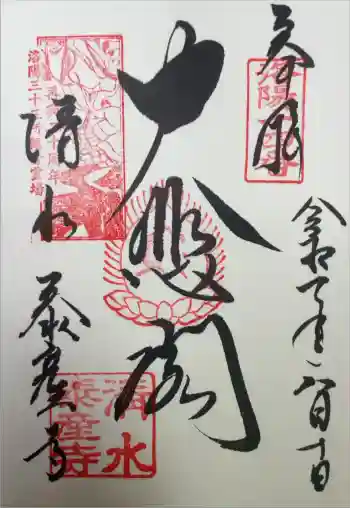 奉拝
洛陽
大悲閣
洛陽三十三所観音霊場
十周年
清水
泰産寺
清水
泰産寺
令和 年 八月十日